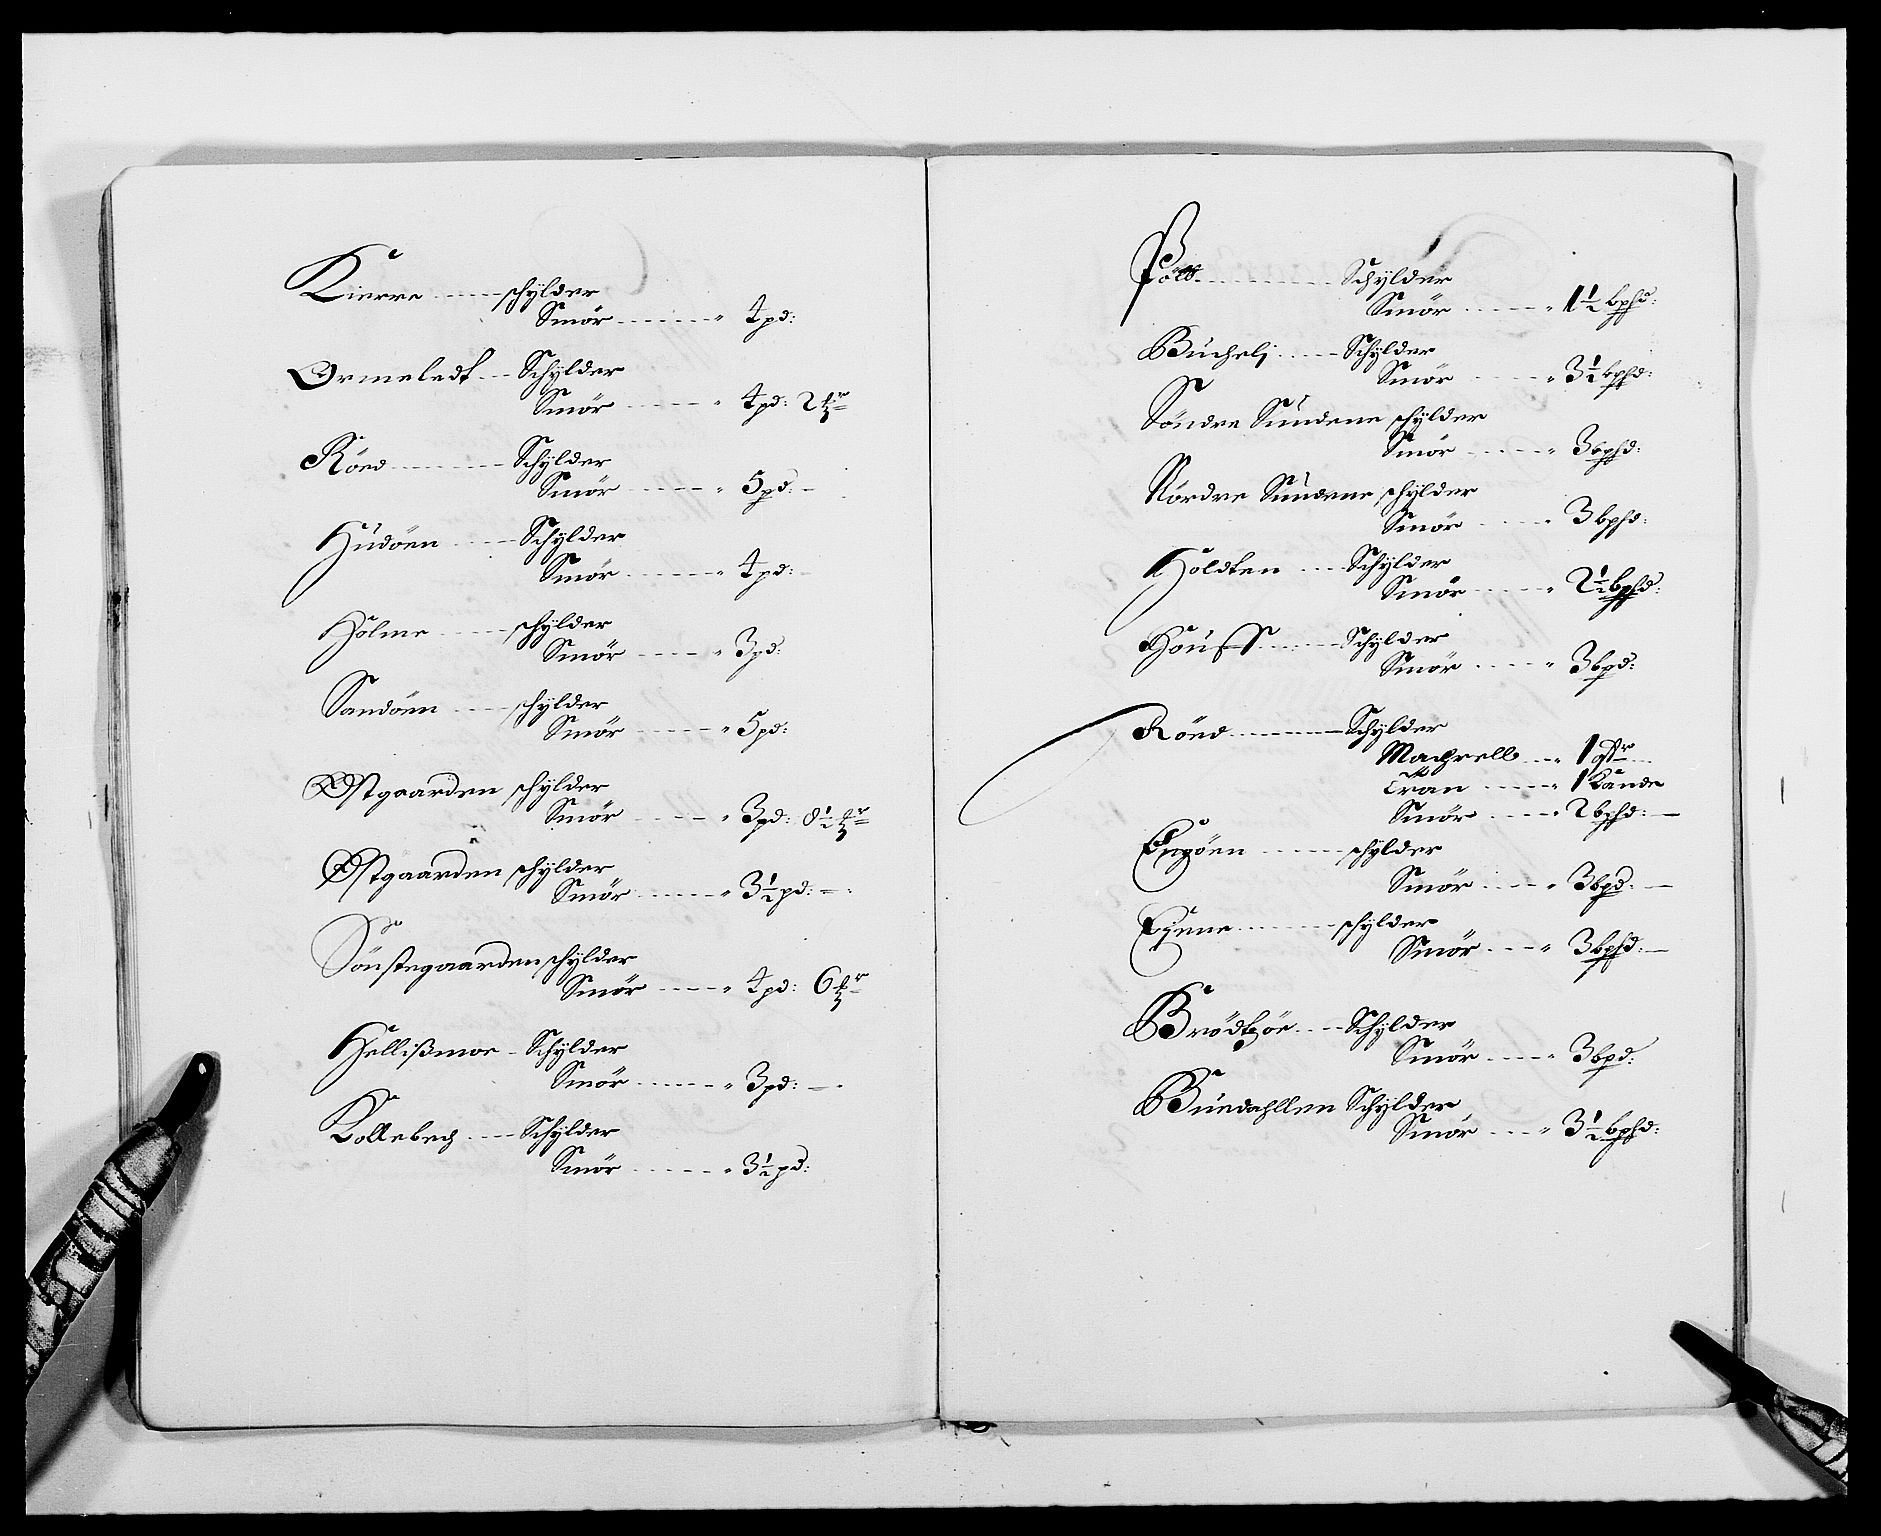 Kierre schylder
Smör 4 pd:
Ormeledt Schylder
Smör 4 pd: 2
Röed Schylder
Smör 5 pd:
Hudöen Schylder
Smör 4 pd:
Holme schylder
Smör 3 pd:
Sandöen schylder
Smör 5 pd:
Østgaarden schylder
Smör 3 pd: 8½
Østgaarden schylder
Smör 3½ pd:
Sönstegaarden schylder
Smör 4 pd: 6
Hellißmoe Schylder
Smör 3 pd:
Kollebech Schylder
Smör 3½ pd:
Schylder
Smör 1½ bphd:
Bücheli Schylder
Smör 3½ bphd:
Söndre Sündene schylder
Smör 3 bphd:
Nordre Sündene schylder
Smör 3 bphd:
Holdten Schylder
Smör 2½ bphd:
Houff Schylder
Smör 3 bpd:
Röed Schylder
Machrell 1
Tran 1 Kande
Smör 2 bphd:
Engöen schylder
Smör 3 bpd:
Eyene schylder
Smör 3 bphd:
Schylder
Smör 3 bpd:
Büedahllen Schylder
Smör 3½ bphd: